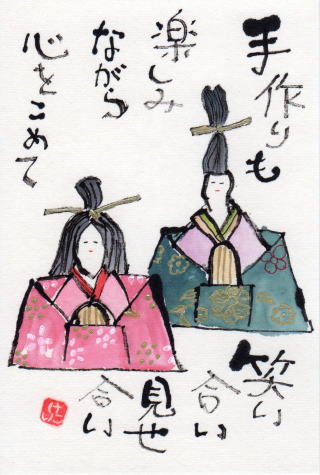 手作りも
楽しみ
ながら
心をこめて
笑い
合い
見せ
合い